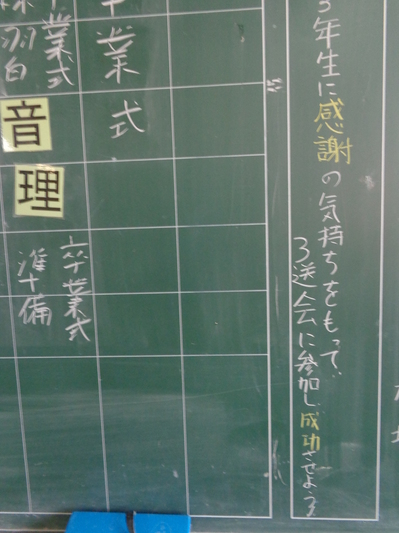 3年生に感謝の気持ちをもって、
3送会に参加し成功させよう!
業式
業式
練習
白
音
理
卒業式
準備